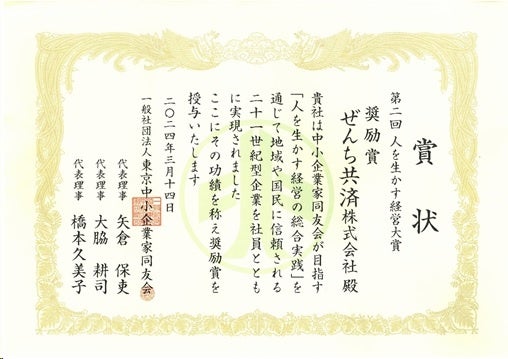 賞状
第二回 人を生かす経営大賞
奨励賞
ぜんち共済株式会社 殿
貴社は中小企業家同友会が目指す
「人を生かす経営の総合実践」を
通じて地域や国民に信頼される
二十一世紀型企業を社員ととも
に実現されました
ここにその功績を称え奨励賞を
授与いたします
二〇二四年三月十四日
一般社団法人 東京中小企業家同友会
代表理事 矢倉 保吏
代表理事 大脇 耕司
代表理事 橋本久美子